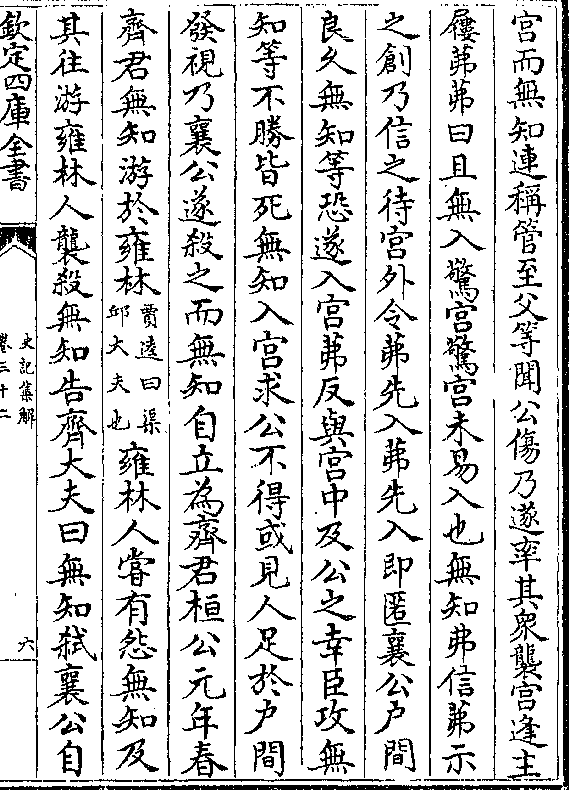 宮而無知連稱管至父等聞公傷乃遂率其衆襲宮逢主
屨茀茀曰且無入驚宮驚宮未易入也無知弗信茀示
之創乃信之待宮外令茀先入茀先入即匿襄公户間
良久無知等恐遂入宮茀反與宮中及公之幸臣攻無
知等不勝皆死無知入宮求公不得或見人足於户間
發視乃襄公遂殺之而無知自立為齊君桓公元年春
齊君無知游於雍林賈逵曰渠邱大夫也雍林人嘗有怨無知及
其往游雍林人襲殺無知告齊大夫曰無知弑襄公自
欽定四庫全書
史記集解
卷三十二
六